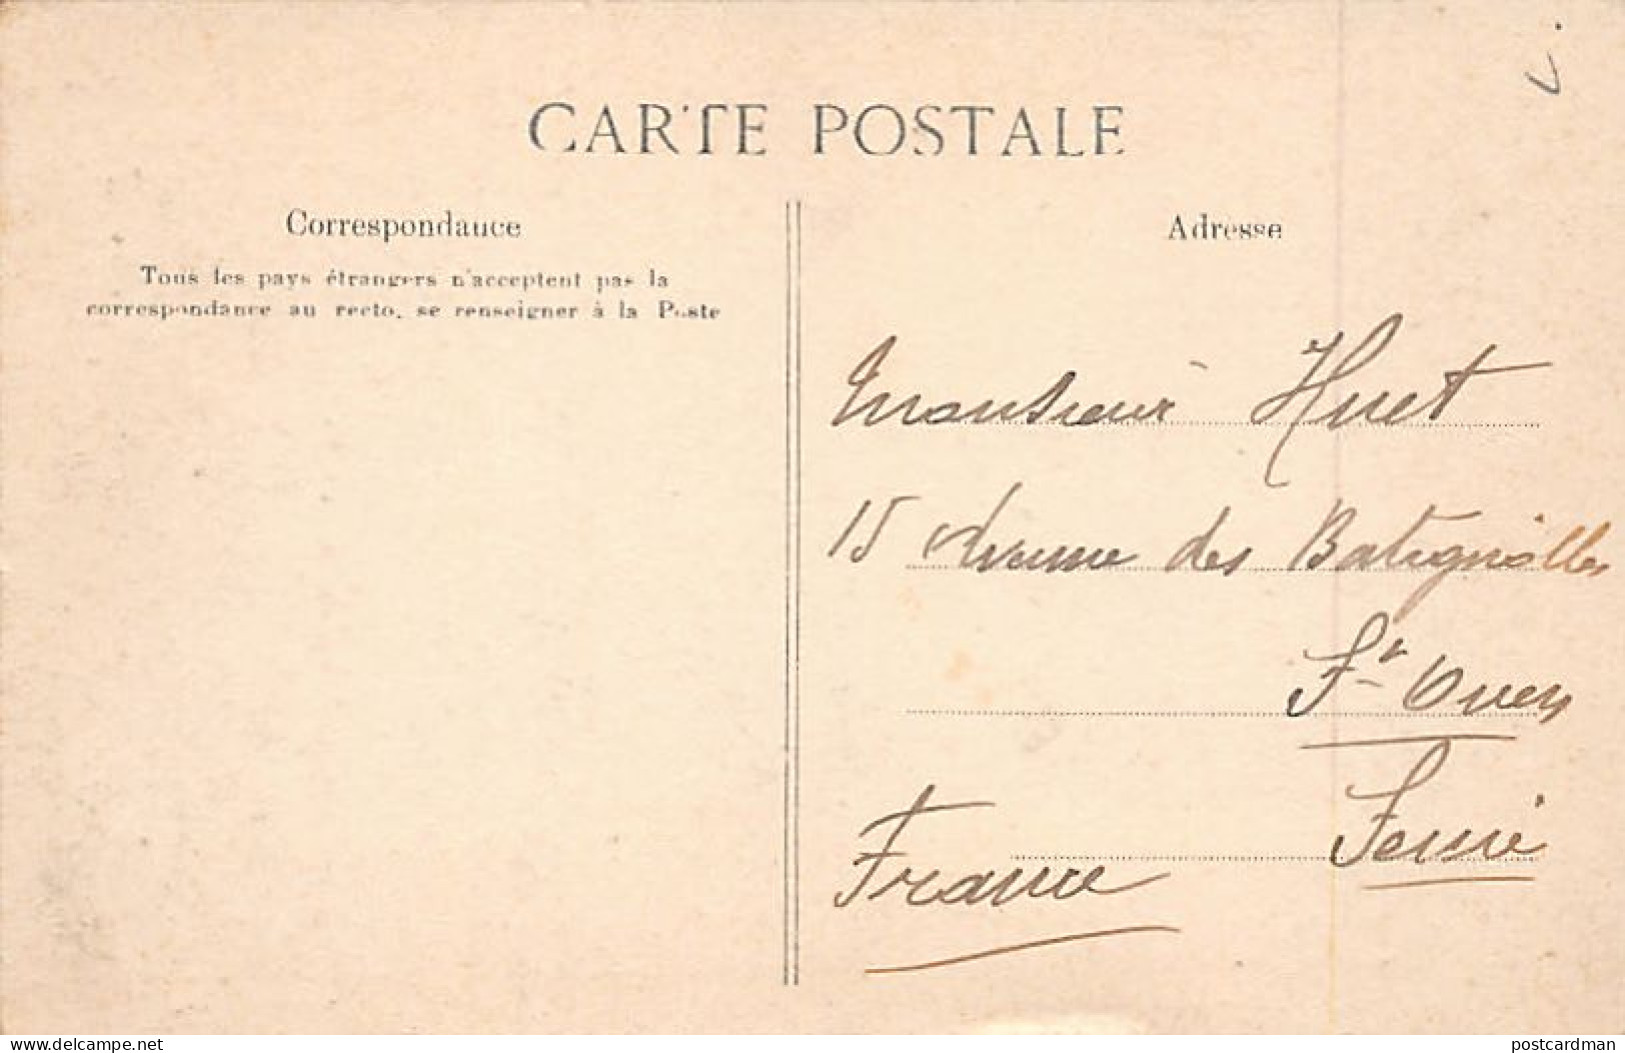 CARTE POSTALE
Correspondance
Tous les pays étrangers n'acceptent pas la
correspondance au recto, se renseigner à la Poste
Adresse
Monsieur Huet
15 Avenue des Batignolles
St Ouen
Seine
France
www.delcampe.net
postcardman